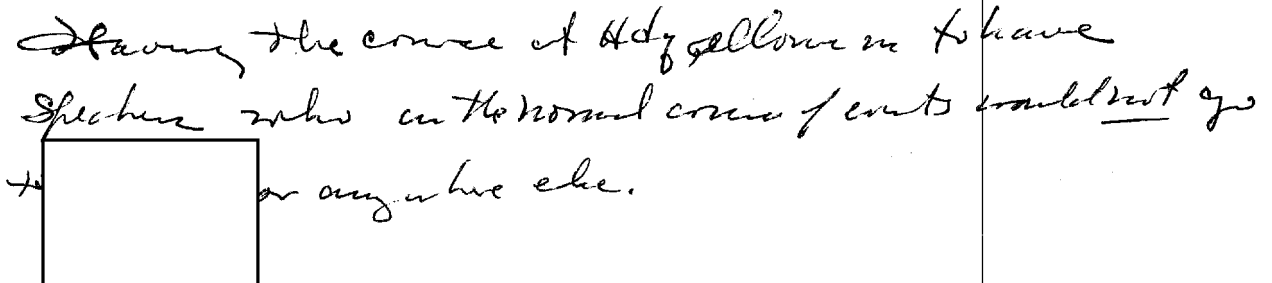 Having the course at Hdq allows us to have
speakers who in the normal course of events would not go
to or anywhere else.